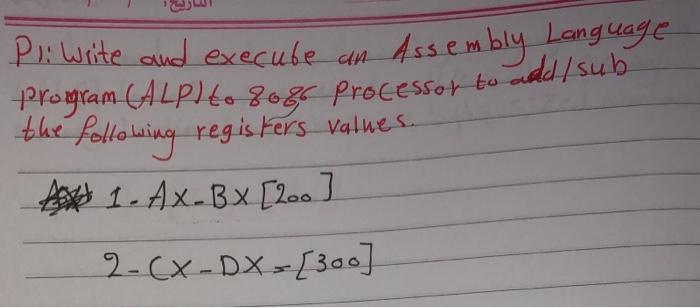 التاريخ:
P1: Write and execute an Assembly Language
program (ALP) to 8086 Processor to add/sub
the following registers values.
1- AX-BX [200]
2- CX-DX=[300]